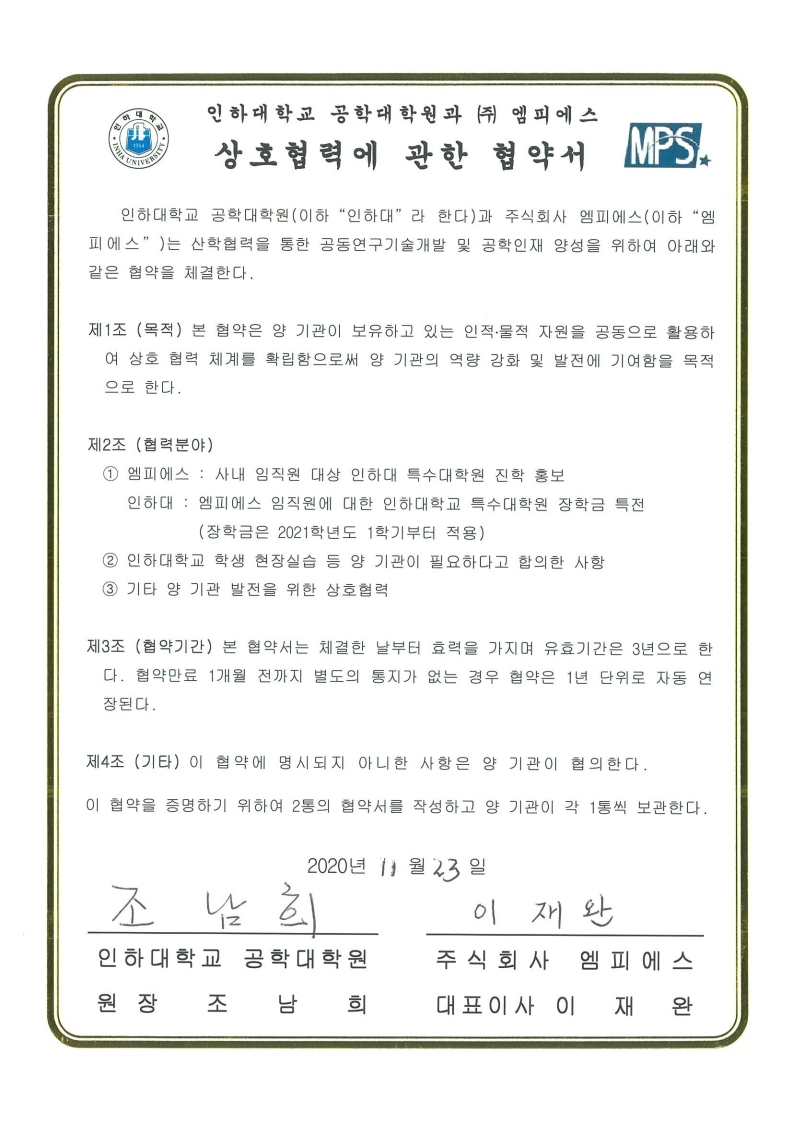 인하대학교 공학대학원과 ㈜ 엠피에스
상호협력에 관한 협약서
인하대학교
INHA UNIVERSITY
1954
MPS
인하대학교 공학대학원(이하 “인하대”라 한다)과 주식회사 엠피에스(이하 “엠
피에스”)는 산학협력을 통한 공동연구기술개발 및 공학인재 양성을 위하여 아래와
같은 협약을 체결한다.
제1조 (목적) 본 협약은 양 기관이 보유하고 있는 인적·물적 자원을 공동으로 활용하
여 상호 협력 체계를 확립함으로써 양 기관의 역량 강화 및 발전에 기여함을 목적
으로 한다.
제2조 (협력분야)
① 엠피에스 : 사내 임직원 대상 인하대 특수대학원 진학 홍보
인하대 : 엠피에스 임직원에 대한 인하대학교 특수대학원 장학금 특전
(장학금은 2021학년도 1학기부터 적용)
② 인하대학교 학생 현장실습 등 양 기관이 필요하다고 합의한 사항
③ 기타 양 기관 발전을 위한 상호협력
제3조 (협약기간) 본 협약서는 체결한 날부터 효력을 가지며 유효기간은 3년으로 한
다. 협약만료 1개월 전까지 별도의 통지가 없는 경우 협약은 1년 단위로 자동 연
장된다.
제4조 (기타) 이 협약에 명시되지 아니한 사항은 양 기관이 협의한다.
이 협약을 증명하기 위하여 2통의 협약서를 작성하고 양 기관이 각 1통씩 보관한다.
2020년 11월 23일
조 남 희
이 재 완
인하대학교 공학대학원
원장 조 남 희
주식회사 엠피에스
대표이사 이 재 완